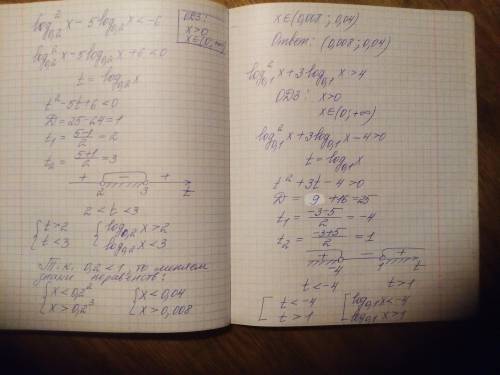 log²₀,₂ x - 5log₀,₂ x < -6
ОДЗ:
x>0
x∈(0;+∞)
log²₀,₂ x - 5log₀,₂ x + 6 < 0
t = log₀,₂ x
t² - 5t + 6 < 0
D = 25 - 24 = 1
t₁ = (5-1)/2 = 2
t₂ = (5+1)/2 = 3
+ - +
2 3 t
2 < t < 3
{ t>2 { log₀,₂ x > 2
{ t<3 { log₀,₂ x < 3
Т.к. 0,2<1, то меняем
знаки неравенств:
{ x < 0,2² { x < 0,04
{ x > 0,2³ { x > 0,008
x∈(0,008; 0,04)
Ответ: (0,008; 0,04)
log²₀,₁ x + 3·log₀,₁ x > 4
ОДЗ: x>0
x∈(0;+∞)
log²₀,₁ x + 3log₀,₁ x - 4 > 0
t = log₀,₁ x
t² + 3t - 4 > 0
D = 9 + 16 = 25
t₁ = (-3-5)/2 = -4
t₂ = (-3+5)/2 = 1
+ - +
-4 1 t
t < -4 t > 1
[ t < -4 [ log₀,₁ x < -4
[ t > 1 [ log₀,₁ x > 1